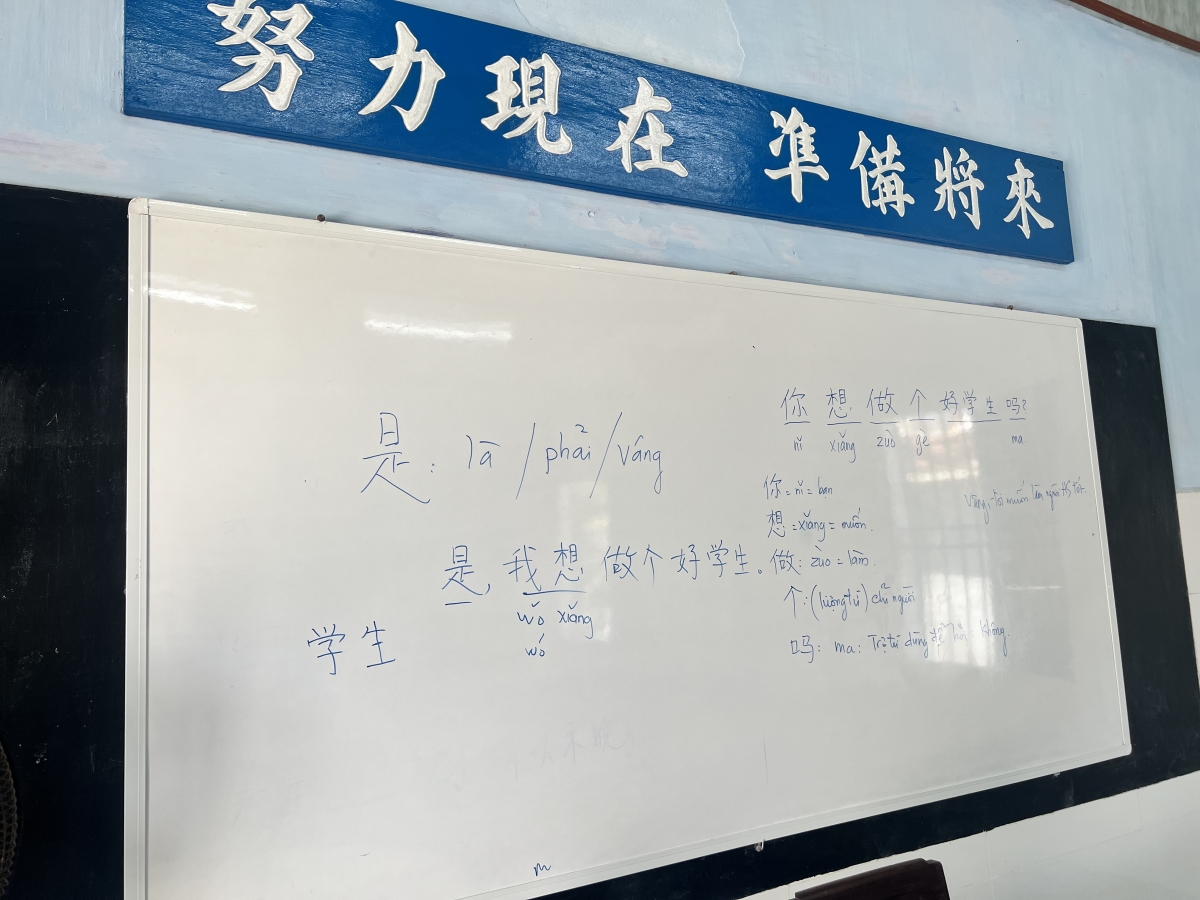 努力現在 準備將來
是: là / phải / vâng
是, 我想做个好学生。
wǒ xiǎng
wó
学生
你想做个好学生吗?
nǐ xiǎng zuò gè ma
你 = nǐ = bạn
想 = xiǎng = muốn.
做: zuò = làm.
个: (lượng từ) chỉ người
吗: ma: Trợ từ dùng để hỏi: không.
Vâng, tôi muốn làm người HS tốt.